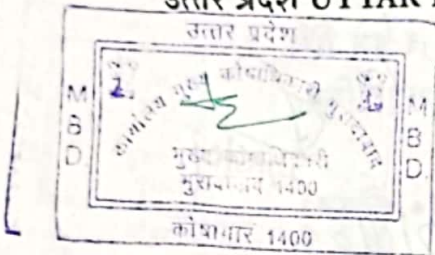 उत्तर प्रदेश UTTAR
उत्तर प्रदेश
M B D
M B D
कार्यालय मुख्य कोषाधिकारी मुरादाबाद
मुख्य कोषाधिकारी
मुरादाबाद 1400
कोषागार 1400